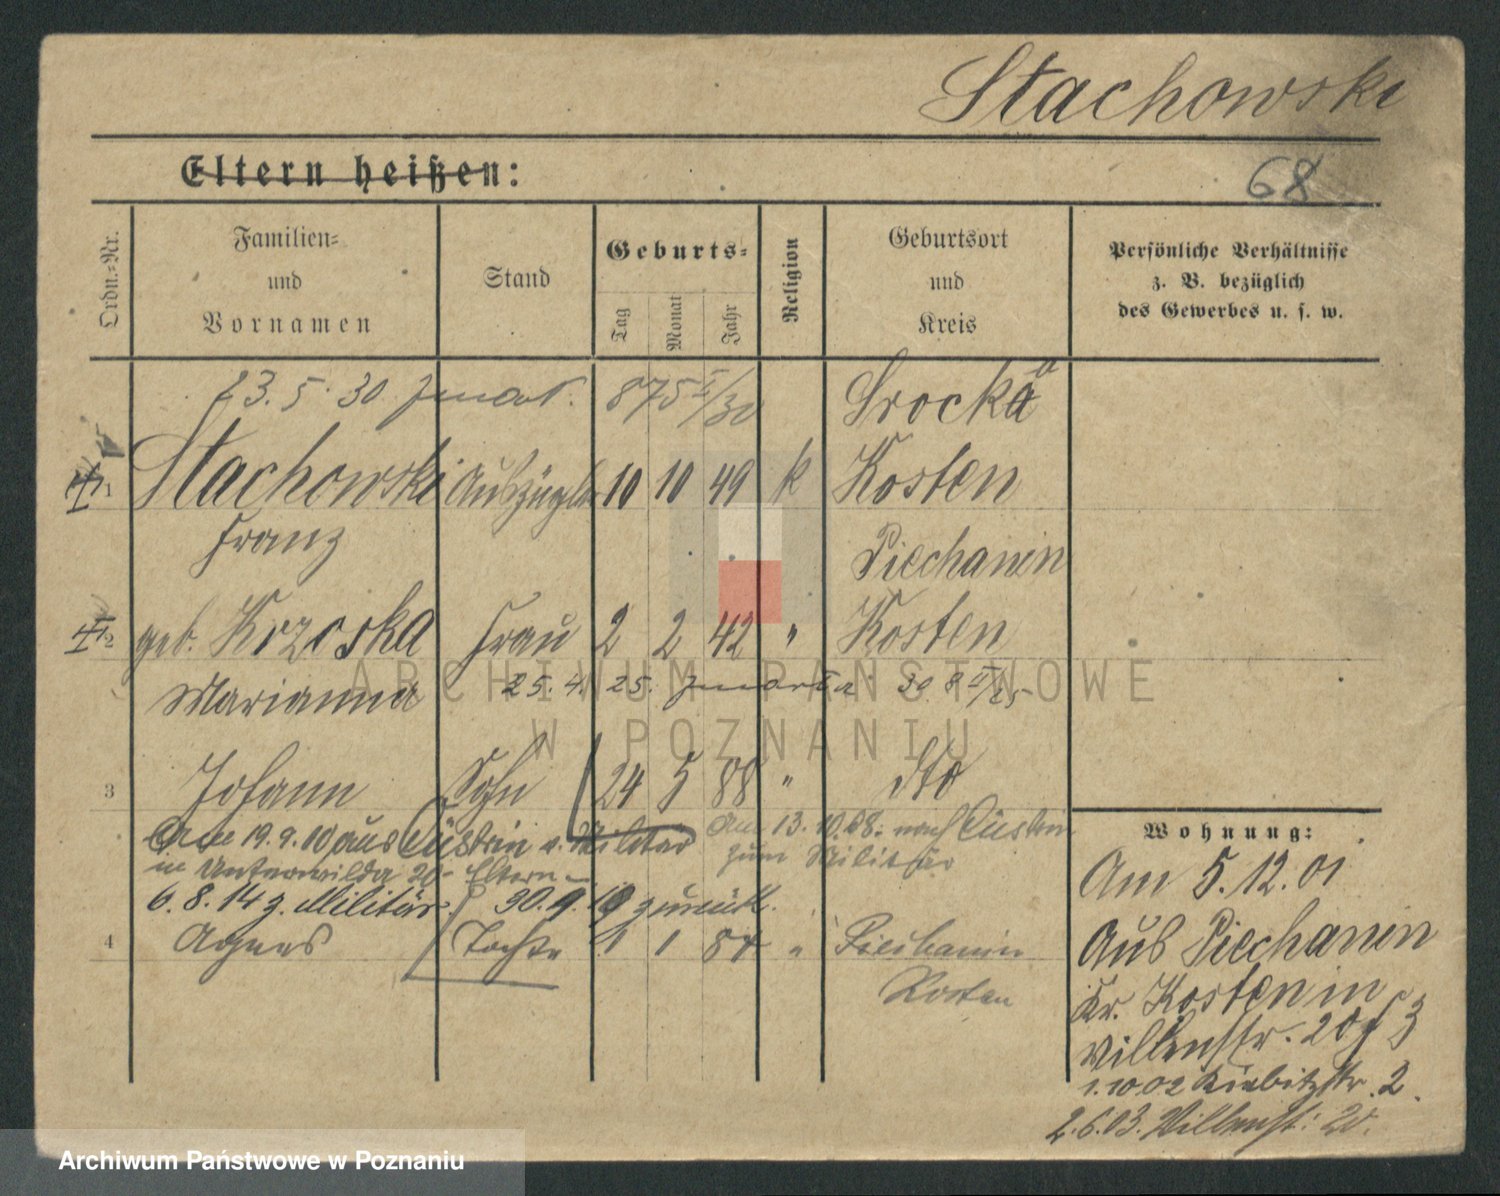 Stachowski
Eltern heißen:
68
Ordn.=Nr.
Familien=
und
Vornamen
Stand
Geburts=
Tag
Monat
Jahr
Religion
Geburtsort
und
Kreis
Persönliche Verhältnisse
z. B. bezüglich
des Gewerbes u. s. w.
23.5.30 875 II/30 Srocko
1 Stachowski Auszügler 10 10 49 k Kosten
Franz Piechanin
2 geb. Krzoska Frau 2 2 42 " Kosten
Marianna 25.4.25.
3 Johann Sohn 24 5 88 " dto
Am 19.9.10 aus Cüstrin v. Militär Am 13.10.08. nach Cüstrin
zum Militär
in Unterwilda 20 Eltern
6.8.14 z. Militär 30.9.19 zurück.
4 Agnes Tochter 1 1 84 " Piechanin
Kosten
Wohnung:
Am 5.12.01
Aus Piechanin
Kr. Kosten in
Villenstr. 20
1.10.02 Kiebitzstr. 2.
2.6.03. Villenst. 20.
ARCHIWUM PAŃSTWOWE
W POZNANIU
Archiwum Państwowe w Poznaniu